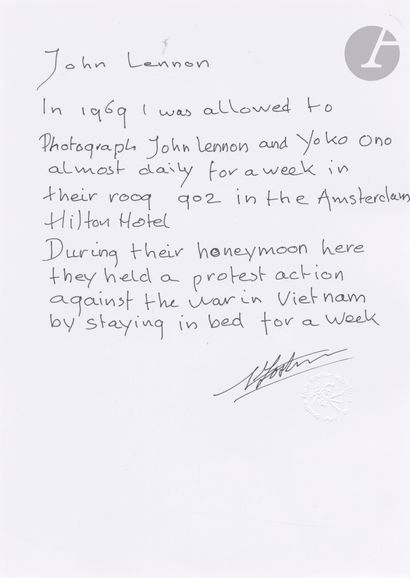 John Lennon
In 1969 I was allowed to
Photograph John Lennon and Yoko Ono
almost daily for a week in
their rooq 902 in the Amsterdam
Hilton Hotel
During their honeymoon here
they held a protest action
against the war in Vietnam
by staying in bed for a week